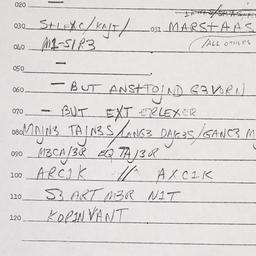 020
030 S+LEXC/KNJT/ 031 MARS+AAS
040 M1-SIR3 (ALL OTHERS
050 —
060 — BUT ANSTTOJND G3VORN
070 - BUT EXT ERLEXER
080 MNJN3 TAJN3S/LANG3 DAK3S/GANC3 M
090 M3CAJ3R EQ TAJ3R
100 ARC1K // AXC1K
110 S3 ART M3R NIT
120 KOPINVANT